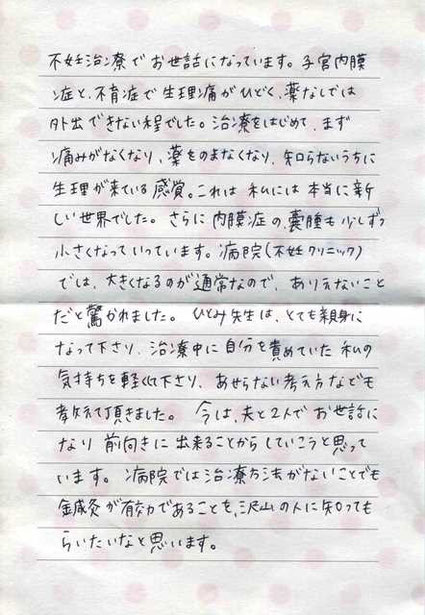 不妊治療でお世話になっています。子宮内膜
症と、不育症で生理痛がひどく、薬なしでは
外出できない程でした。治療をはじめて、まず
痛みがなくなり、薬をのまなくなり、知らないうちに
生理が来ている感覚。これは私には本当に新
しい世界でした。さらに内膜症の嚢腫も少しずつ
小さくなっていっています。病院(不妊クリニック)
では、大きくなるのが通常なので、ありえないこと
だと驚かれました。ひとみ先生は、とても親身に
なって下さり、治療中に自分を責めていた私の
気持ちを軽くして下さり、あせらない考え方なども
教えて頂きました。今は、夫と2人でお世話に
なり前向きに出来ることからしていこうと思って
います。病院では治療方法がないことでも
鍼灸が有効であることを、沢山の人に知っても
らいたいなと思います。